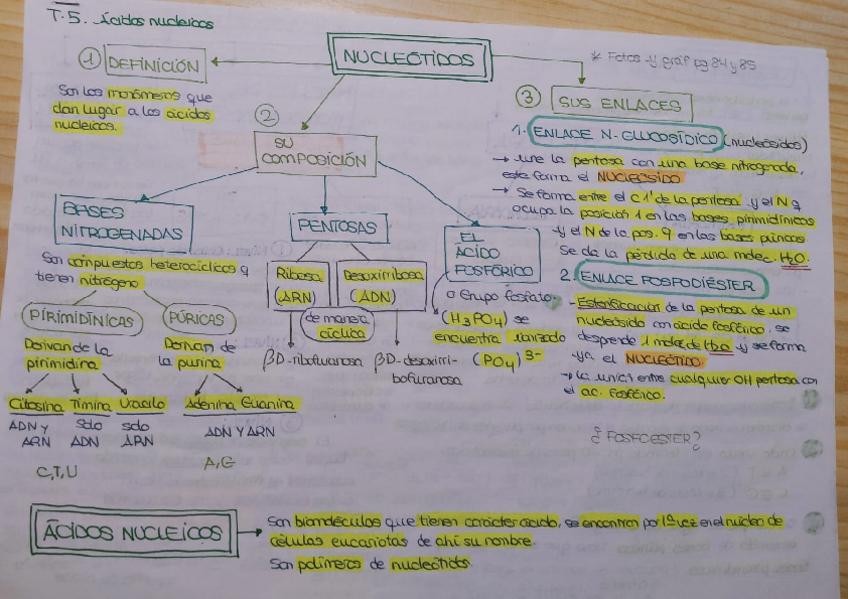 T.5. Ácidos nucleicos
NUCLEÓTIDOS
* Fotos y gráf pg 84 y 85
① DEFINICIÓN
Son los monómeros que
dan lugar a los ácidos
nucleicos.
②
SU
COMPOSICIÓN
BASES
NITROGENADAS
Son compuestos heterocíclicos q
tienen nitrógeno
PIRIMIDÍNICAS
Derivan de la
pirimidina
Citosina Timina Uracilo
ADN Y ARN
Sólo ADN
sólo ARN
C,T,U
PÚRICAS
Derivan de
la purina
Adenina Guanina
ADN Y ARN
A,G
PENTOSAS
Ribosa
(ARN)
Desoxirribosa
(ADN)
de manera
cíclica
βD-ribofuranosa
βD-desoxirri-
bofuranosa
EL
ÁCIDO
FOSFÓRICO
o Grupo fosfato
(H3PO4) se
encuentra ionizado
(PO4)3-
③ SUS ENLACES
1. ENLACE N-GLUCOSÍDICO (nucleósidos)
→ une la pentosa con una base nitrogenada,
este forma el NUCLEÓSIDO
→ Se forma entre el C1' de la pentosa y el N q
ocupa la posición 1 en las bases pirimidínicas
y el N de la pos. 9 en las bases púricas
Se da la pérdida de una molec. H2O.
2. ENLACE FOSFODIÉSTER
- Esterificación de la pentosa de un
nucleósido con ácido fosfórico, se
desprende 1 molec de H2O y se forma
ya el NUCLEÓTIDO
→ la unión entre cualquier OH pentosa con
el ac. fosfórico.
¿FOSFOÉSTER?
ÁCIDOS NUCLEICOS
Son biomoléculas que tienen carácter ácido, se encontron por 1ª vez en el núcleo de
células eucariotas de ahí su nombre.
Son polímeros de nucleótidos.